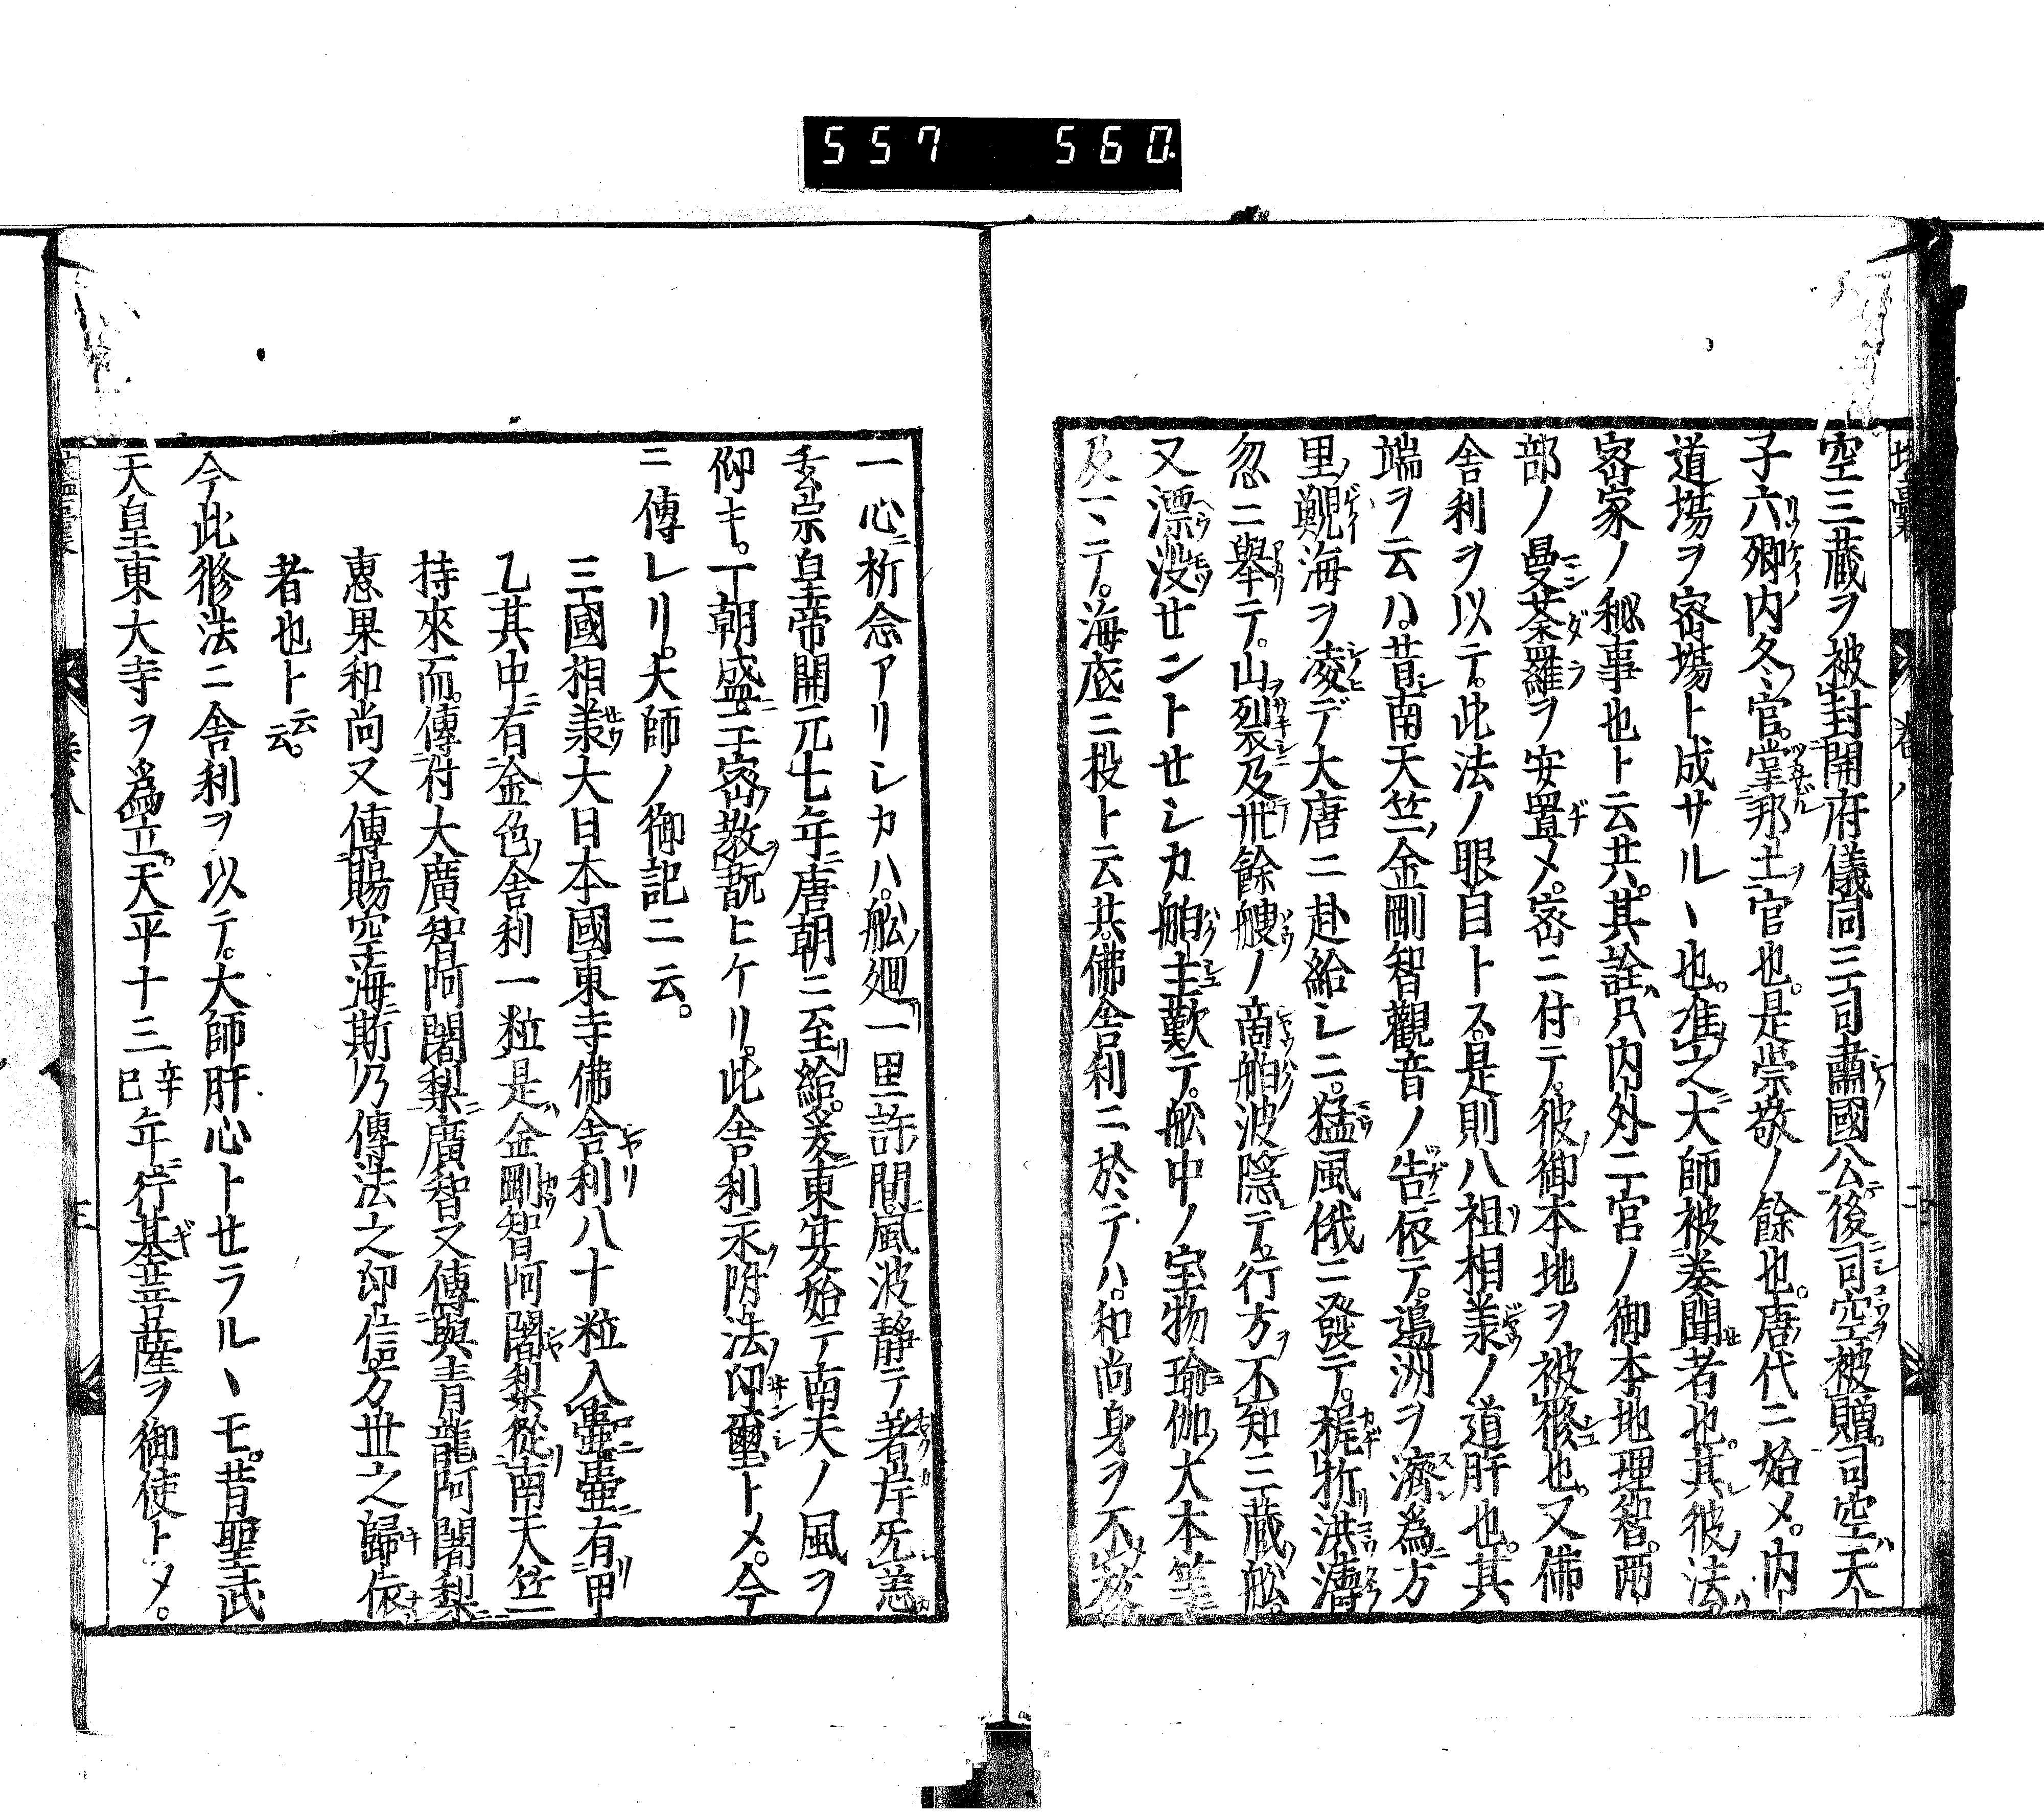 557 560
空三藏ヲ被封開府儀同三司肅國公後司空被贈司空ハ天
子六卿内冬官掌邦土官也是崇敬ノ餘也唐代ニ始メ内
道場ヲ密場ト成サルヽ也准之大師被奏聞者也其彼法
密家ノ秘事也ト云共其詮只内外二宮ノ御本地理智兩
部ノ曼荼羅ヲ安置メ密ニ付テ彼御本地ヲ被修也又佛
舎利ヲ以テ此法ノ眼目トス是則八祖相羕ノ道肝也其
端ヲ云ハ昔南天竺金剛智觀音ノ告依テ遏洲ヲ濟爲方
里鯢海ヲ凌デ大唐ニ赴給シニ猛風俄ニ發テ梶拆洪濤
忽ニ擧テ山裂及卅餘艘ノ商舶波隱テ行方不知三藏舩
又漂没せントせシカ舶主歎テ舩中ノ宝物瑜伽大本等
及ヽテ海底ニ投ト云共佛舎利ニ於テハ和尚身ヲ不放
一心祈念アリシカハ舩廻一里許間風波静テ著岸旡恙
玄宗皇帝開元七年唐朝ニ至給爰東寔始テ南天ノ風ヲ
仰キ一朝盛三密教翫ヒケリ此舎利永附法印璽トメ今
ニ傳レリ大師ノ御記ニ云
三國相羕大日本國東寺佛舎利八十粒入壷壷有甲
乙其中有金色舎利一粒是金剛智阿闍梨從南天竺
持來而傳付大廣智阿闍梨廣智又傳與青龍阿闍梨
惠果和尚又傳賜空海斯乃傳法之印信万世之歸依
者也ト云云
今此修法ニ舎利ヲ以テ大師肝心トせラルヽモ昔聖武
天皇東大寺ヲ爲立天平十三辛巳年行基菩薩ヲ御使トメ